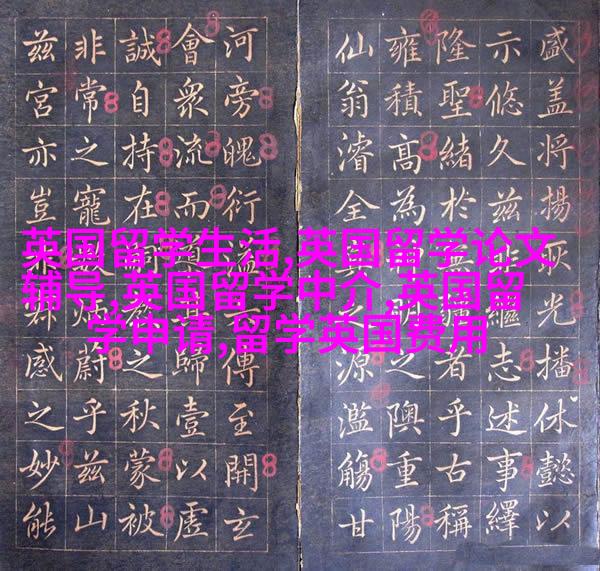 英国留学生活,英国留学论文
辅导,英国留学中介,英国留
学申请,留学英国费用
盛盖将揚耿光播休懿以
示悠久兹能繼志述事繹
隆聖緒於無疆者乎古稱
雍積高為明之隩重陽
仙翁濬全真之源濫觴甘
河旁魄衍傳至開玄
會衆流而歸壹以虛
誠自持在嗣之秋蒙被
非常之寵炳蔚乎兹山
兹宮亦豈感之妙能